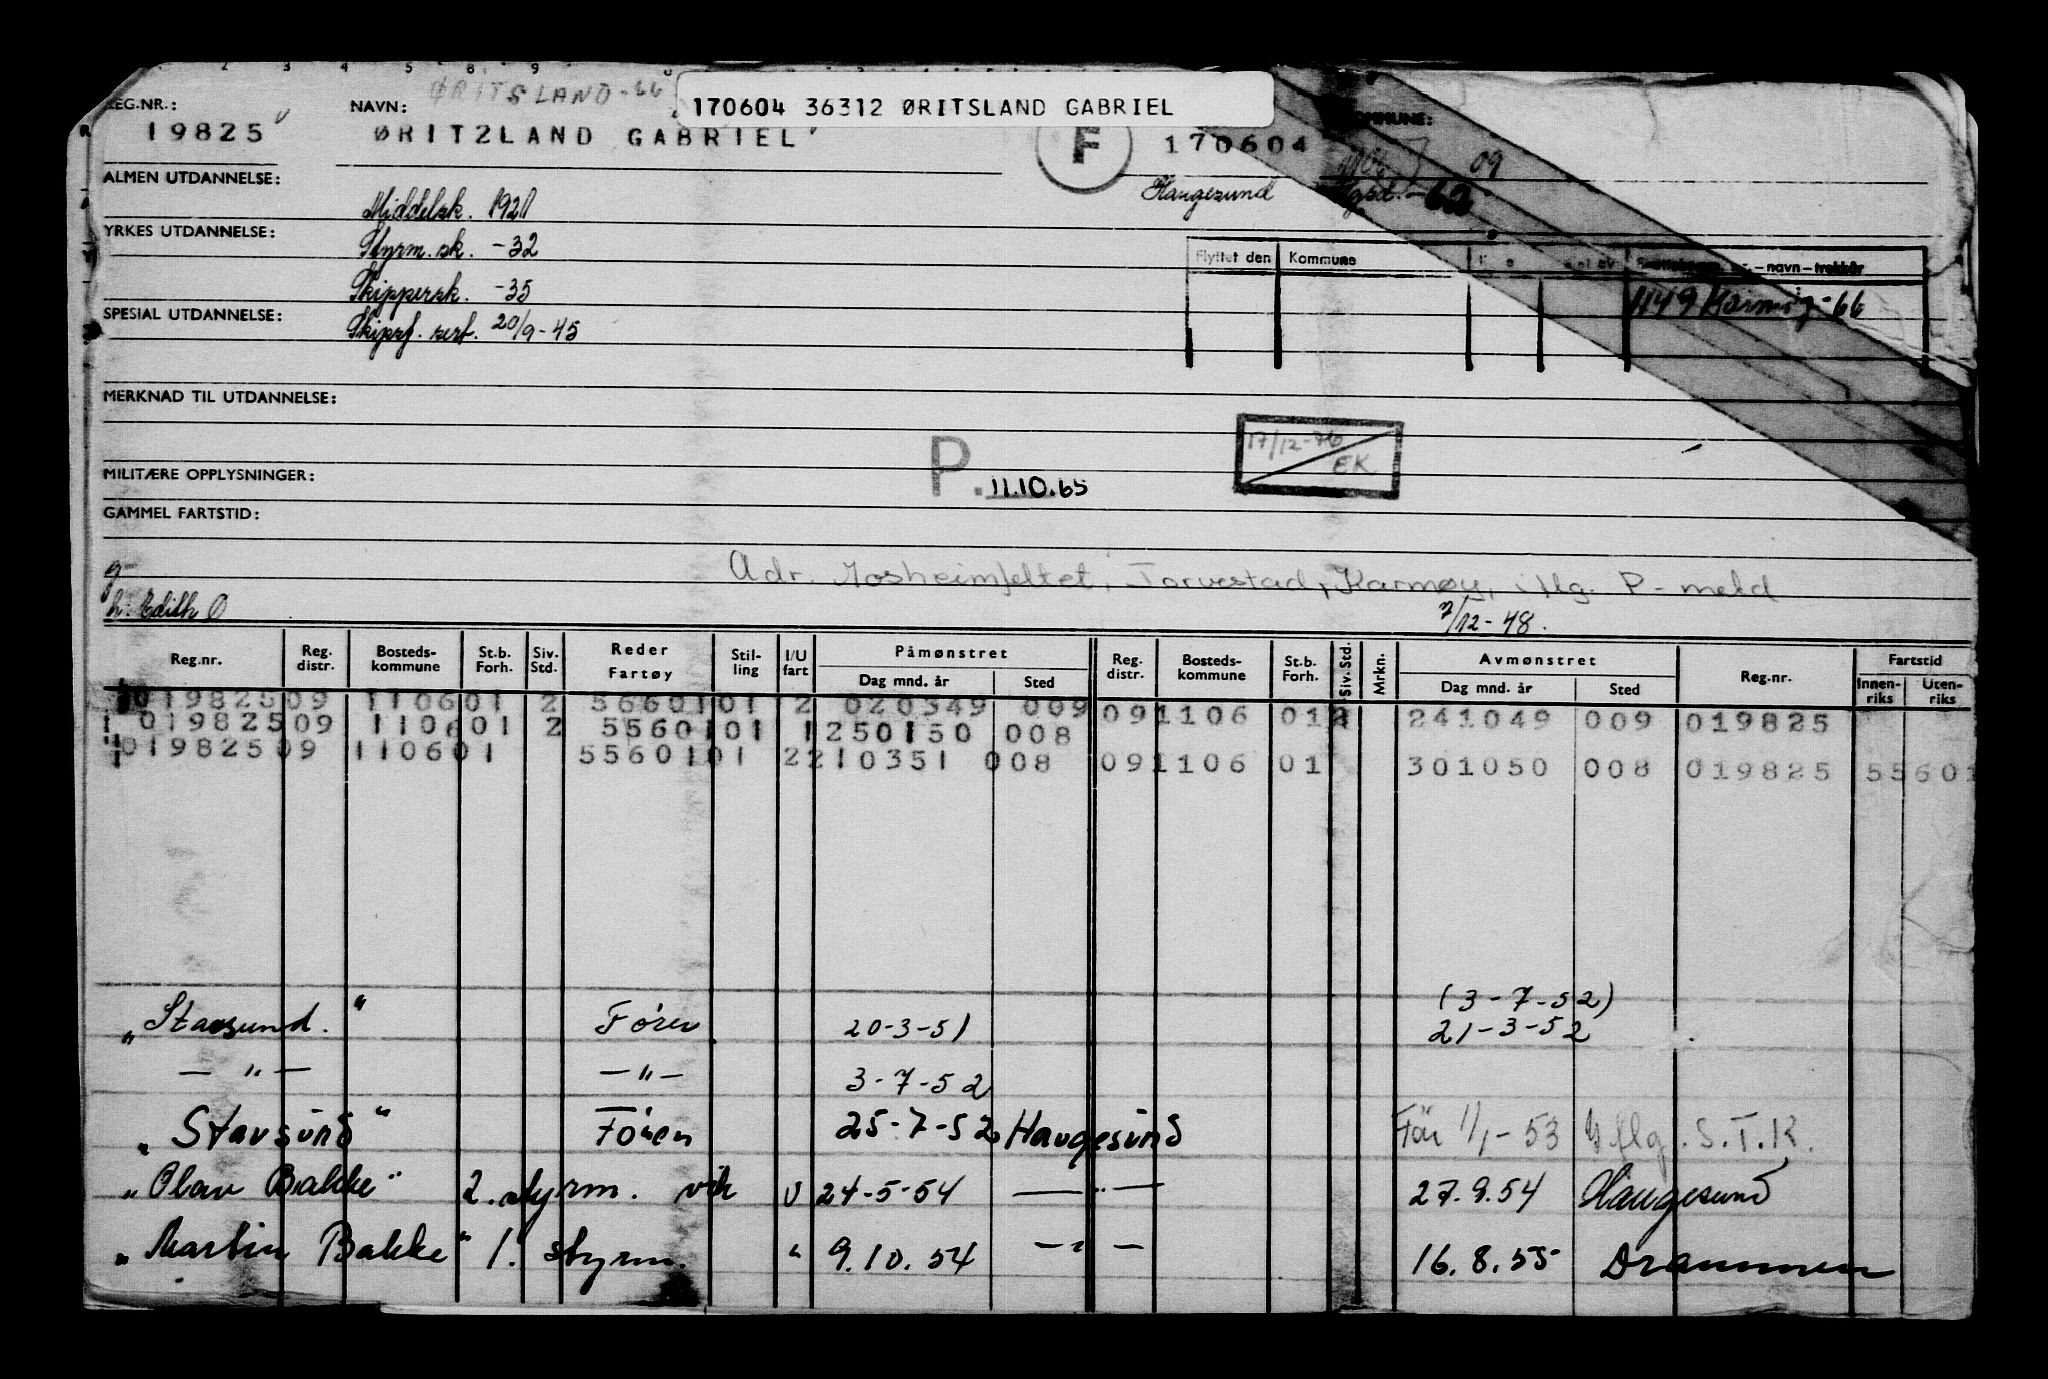 2 3 4 5 8 9
REG.NR.: NAVN: ØRITSLAND -66 170604 36312 ØRITSLAND GABRIEL KOMMUNE:
19825 ØRITZLAND GABRIEL F 170604 09
ALMEN UTDANNELSE: Middelsk. 1921 Haugesund Hgsd. -62
YRKES UTDANNELSE: Styrm. sk. -32
Flyttet den Kommune navn-trekkår
Skippersk. -35 1149 Karmøy -66
SPESIAL UTDANNELSE: Skipsf. sert. 20/9-45
MERKNAD TIL UTDANNELSE:
17/12-76
EK
MILITÆRE OPPLYSNINGER: P. 11.10.65
GAMMEL FARTSTID:
g Adr. Torvestad, Karmøy, iflg. P-meld
h: Edith O 7/12-48.
Reg.nr. Reg. distr. Bosteds-kommune St.b. Forh. Siv. Std. Reder Fartøy Stil-ling I/U fart Påmønstret Dag mnd. år Sted Reg. distr. Bosteds-kommune St.b. Forh. Siv. Std. Mrkn. Avmønstret Dag mnd. år Sted Reg.nr. Fartstid Innen-riks Uten-riks
019825 09 1106 01 2 5560101 2 020349 009 09 1106 01 2 241049 009 019825
019825 09 1106 01 2 5560101 1 250150 008
019825 09 1106 01 5560101 2 210351 008 09 1106 01 301050 008 019825 55601
(3-7-52)
"Stavsund." Fører 20-3-51 21-3-52
— " — — " — 3-7-52
"Stavsund" Fören 25-7-52 Haugesund Før 1/1-53 iflg. S.T.K.
"Olav Bakke" 2. styrm. vik U 24-5-54 — " — 27.9.54 Haugesund
"Martin Bakke" 1. styrm. " 9.10.54 — " — 16.8.55 Drammen